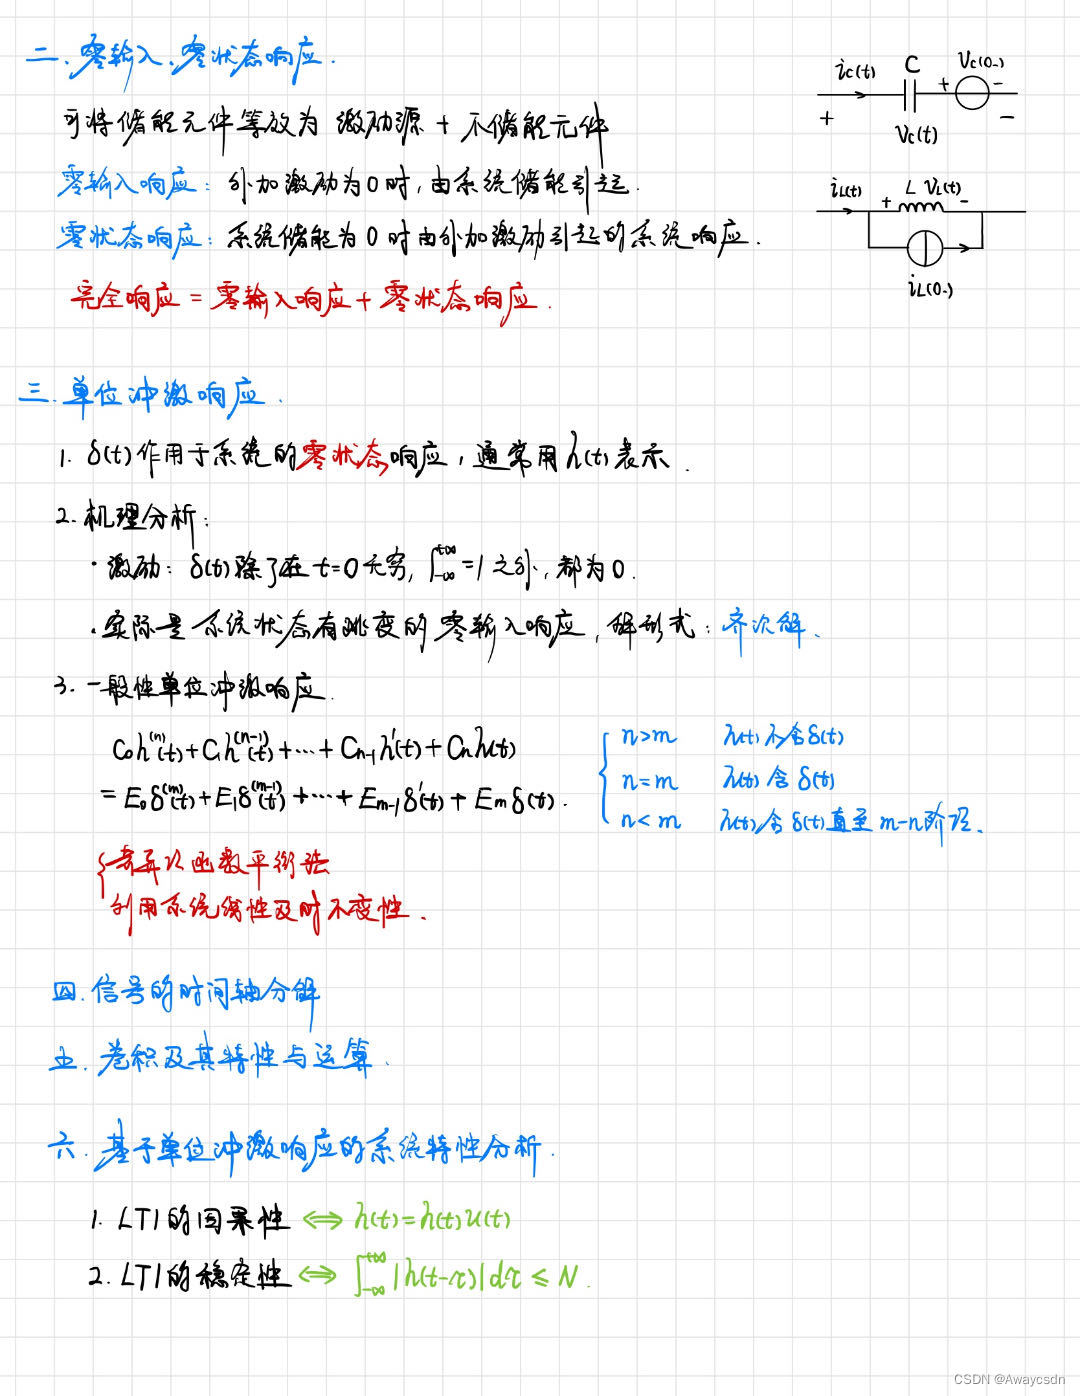 二、零输入、零状态响应.
可将储能元件等效为 激励源 + 不储能元件
零输入响应: 外加激励为0时,由系统储能引起.
零状态响应: 系统储能为0时由外加激励引起的系统响应.
完全响应 = 零输入响应 + 零状态响应.
ic(t) C Vc(0-)
+ -
+ Vc(t) -
iL(t) + L VL(t) -
iL(0-)
三.单位冲激响应.
1. δ(t)作用于系统的零状态响应,通常用h(t)表示.
2. 机理分析:
·激励: δ(t)除了在t=0无穷, ∫_{-∞}^{+∞}=1之外,都为0.
·实际是系统状态有跳变的零输入响应,解形式:齐次解.
3. 一般性单位冲激响应.
C₀h⁽ⁿ⁾(t)+C₁h⁽ⁿ⁻¹⁾(t)+···+Cₙ₋₁h'(t)+Cₙh(t)
= E₀δ⁽ᵐ⁾(t)+E₁δ⁽ᵐ⁻¹⁾(t)+···+Eₘ₋₁δ'(t)+Eₘδ(t).
n>m h(t)不含δ(t)
n=m h(t)含δ(t)
n<m h(t)含δ(t)直至m-n阶
函数平衡法
利用系统线性及时不变性.
四.信号的时间轴分解
五.卷积及其特性与运算.
六.基于单位冲激响应的系统特性分析.
1. LTI的因果性 ⟺ h(t)=h(t)u(t)
2. LTI的稳定性 ⟺ ∫_{-∞}^{+∞}|h(t-τ)|dτ ≤ N.
CSDN @Awaycsdn